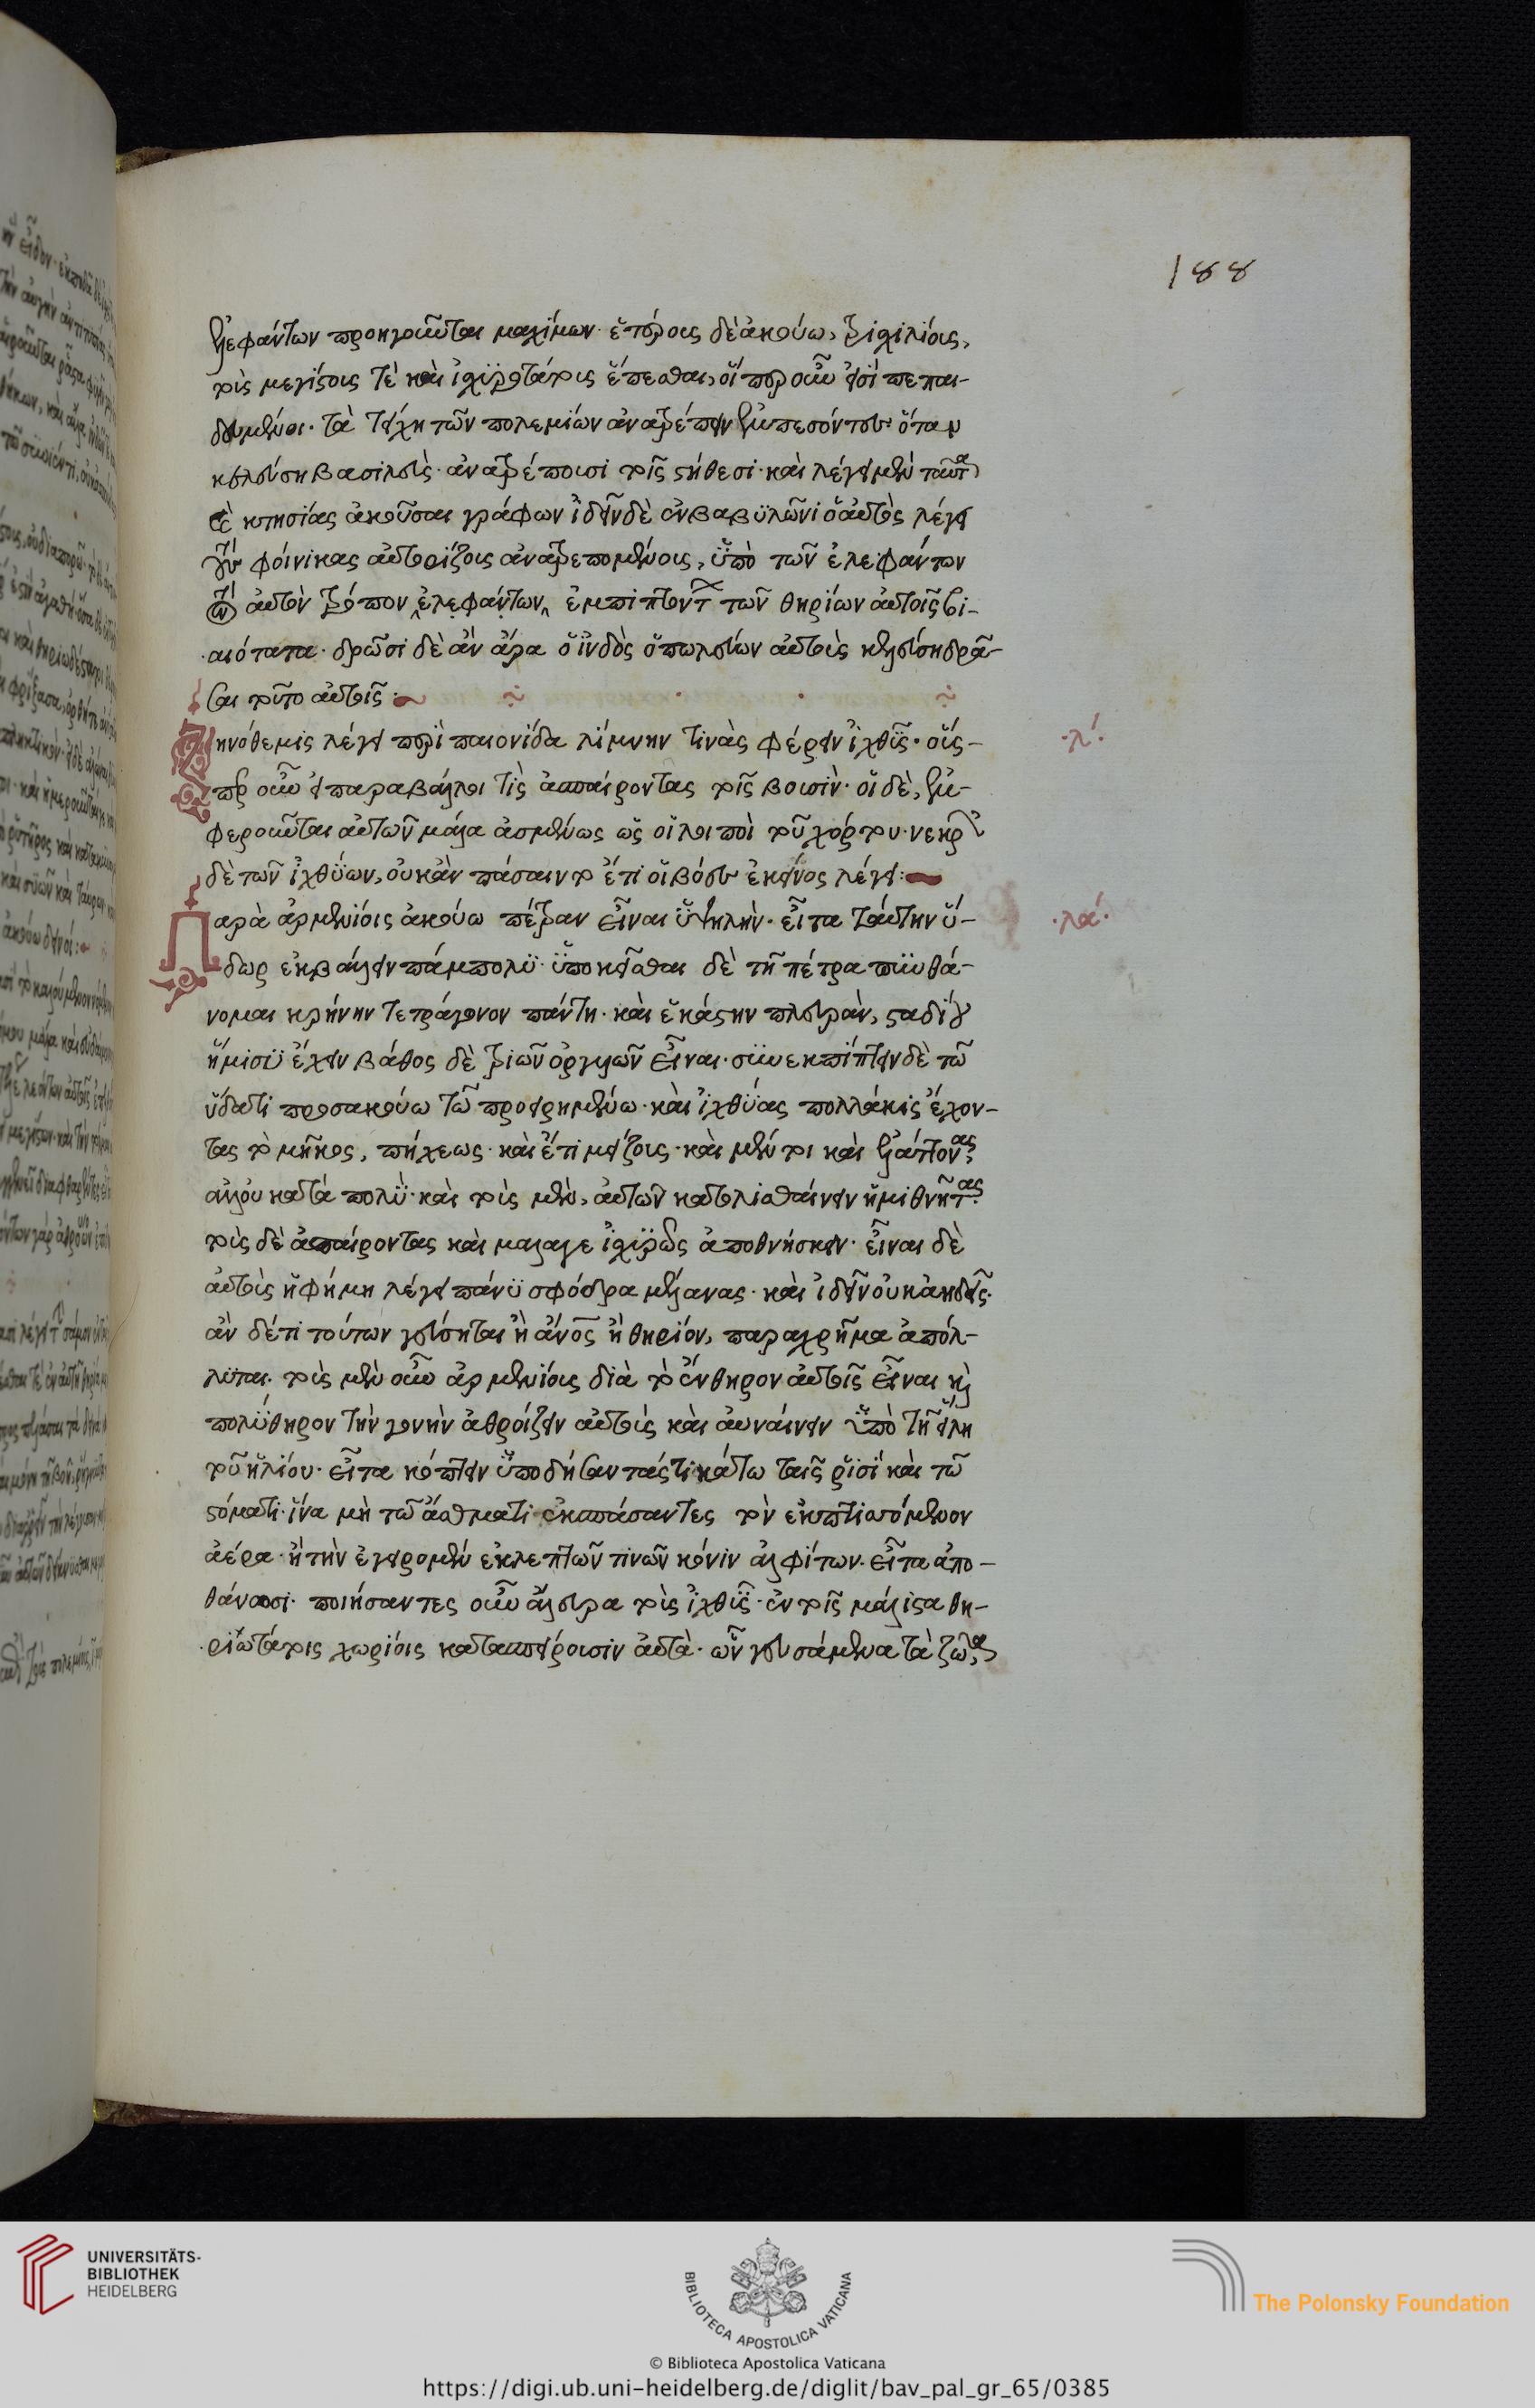 188
ἐλεφάντων προηγοῦνται μαχίμων· ἑτέρους δὲ ἀκούω, τρισχιλίους,
τοὺς μεγίστους τὲ καὶ ἰσχυροτάτους ἕπεσθαι, οἵπερ οὖν εἰσὶ πεπαι-
δευμένοι· τὰ τείχη τῶν πολεμίων ἀνατρέπειν ἐμπεσόντες· ὅταν
κελεύση βασιλεὺς· ἀνατρέπουσι τοῖς στήθεσι· καὶ λέγει μὲν ταῦτα
κτησίας ἀκοῦσαι γράφων ἰδεῖν δὲ ἐν βαβυλῶνι ὁ αὐτὸς λέγει
τοὺς φοίνικας αὐτορίζους ἀνατρεπομένους, ὑπὸ τῶν ἐλεφάντων
τὸν αὐτὸν τρόπον ἐλεφάντων ἐμπιπτόντων τῶν θηρίων αὐτοῖς βι-
αιότατα· δρῶσι δὲ ἂν ἄρα ὁ ἰνδὸς ὁ πωλεύων αὐτοὺς κελεύση δρᾶ-
σαι τοῦτο αὐτοῖς·
Ζηνόθεμις λέγει περὶ παιονίδα λίμνην τινὰς φέρειν ἰχθῦς· οὕς- ·λ΄·
περ οὖν εἰ παραβάλλοι τὶς ἀσπαίροντας τοῖς βουσὶν· οἱ δὲ, ἐμ-
φεροῦνται αὐτῶν μάλα ἀσμένως ὡς οἱ λοιποὶ τοῦ χόρτου· νεκρῶν
δὲ τῶν ἰχθύων, οὐκ ἂν πάσαιντο ἔτι οἱ βόες ἐκεῖνος λέγει:
Παρὰ ἀρμενίοις ἀκούω πέτραν εἶναι ὑψηλὴν· εἶτα ταύτην ὕ- ·λα΄·
δωρ ἐκβάλλειν πάμπολυ· ὑποκεῖσθαι δὲ τῆ πέτρα πυνθά-
νομαι κρήνην τετράγωνον πάντη· καὶ ἑκάστην πλευρὰν, σταδίου
ἥμισυ ἔχειν βάθος δὲ τριῶν ὀργυιῶν εἶναι· συνεκπίπτειν δὲ τῶ
ὕδατι προσακούω τῶ προειρημένω· καὶ ἰχθύας πολλάκις ἔχον-
τας τὸ μῆκος, πήχεως· καὶ ἔτι μείζους· καὶ μέντοι καὶ ἐλάττονας·
ἀλλ' οὐ κατὰ πολὺ· καὶ τοὺς μὲν, αὐτῶν κατολισθαίνειν ἡμιθνῆτας·
τοὺς δὲ ἀσπαίροντας καὶ μάλα γε ἰσχυρῶς ἀποθνήσκειν· εἶναι δὲ
αὐτοὺς ἡ φήμη λέγει πάνυ σφόδρα μέλανας· καὶ ἰδεῖν οὐκ ἀηδεῖς·
ἂν δέ τι τούτων γεύσηται ἢ ἄνος ἢ θηρίον, παραχρῆμα ἀπόλ-
λυται· τοὺς μὲν οὖν ἀρμενίους διὰ τὸ ἔνθηρον αὐτοῖς εἶναι καὶ
πολύθηρον τὴν γονὴν ἀθροίζειν αὐτοὺς καὶ αὐαίνειν ὑπὸ τῆ εἵλη
τοῦ ἡλίου· εἶτα κόπτειν ὑποδήσαντάς τι κάτω ταῖς ῥισὶ καὶ τῶ
στόματι· ἵνα μὴ τῶ ἄσθματι ἐκσπάσαντες τὸν ἐκπτισσόμενον
ἀέρα· ἢ τὴν ἐγειρομένην ἐκ λεπτῶν τινῶν κόνιν ἀλφίτων· εἶτα ἀπο-
θάνωσι· ποιήσαντες οὖν ἄλευρα τοὺς ἰχθῦς· ἐν τοῖς μάλιστα θη-
ριωτάτοις χωρίοις κατασπείρουσιν αὐτὰ· ὧν γευσάμενα τὰ ζῶα
UNIVERSITÄTS-
BIBLIOTHEK
HEIDELBERG
BIBLIOTECA APOSTOLICA VATICANA
The Polonsky Foundation
© Biblioteca Apostolica Vaticana
https://digi.ub.uni-heidelberg.de/diglit/bav_pal_gr_65/0385